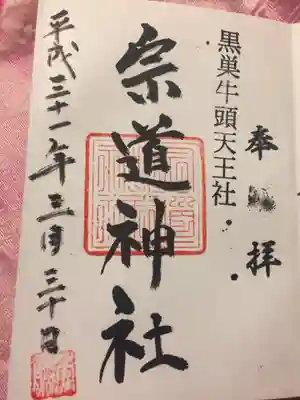 奉拝
黒巣牛頭天王社
宗道神社
平成三十一年三月三十日